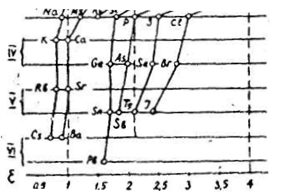 Na
P S Cl
K Ca
IV
Ge As Se Br
Rb Sr
V
Sn Sb Te J
Cs Ba
VI
Pb
ε 0,9 1 1,5 2 2,5 3 3,5 4